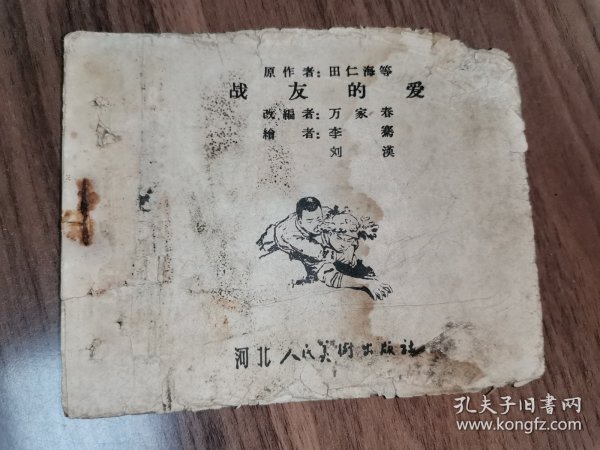 原作者：田仁海等
战友的爱
改編者：万家春
繪者：李騫
刘漢
河北人民美術出版社
孔夫子旧書网
www.kongfz.com